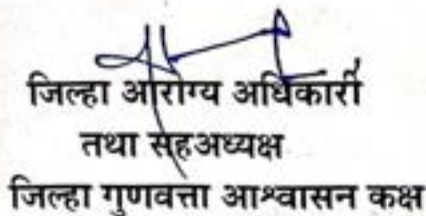 जिल्हा आरोग्य अधिकारी
तथा सहअध्यक्ष
जिल्हा गुणवत्ता आश्वासन कक्ष